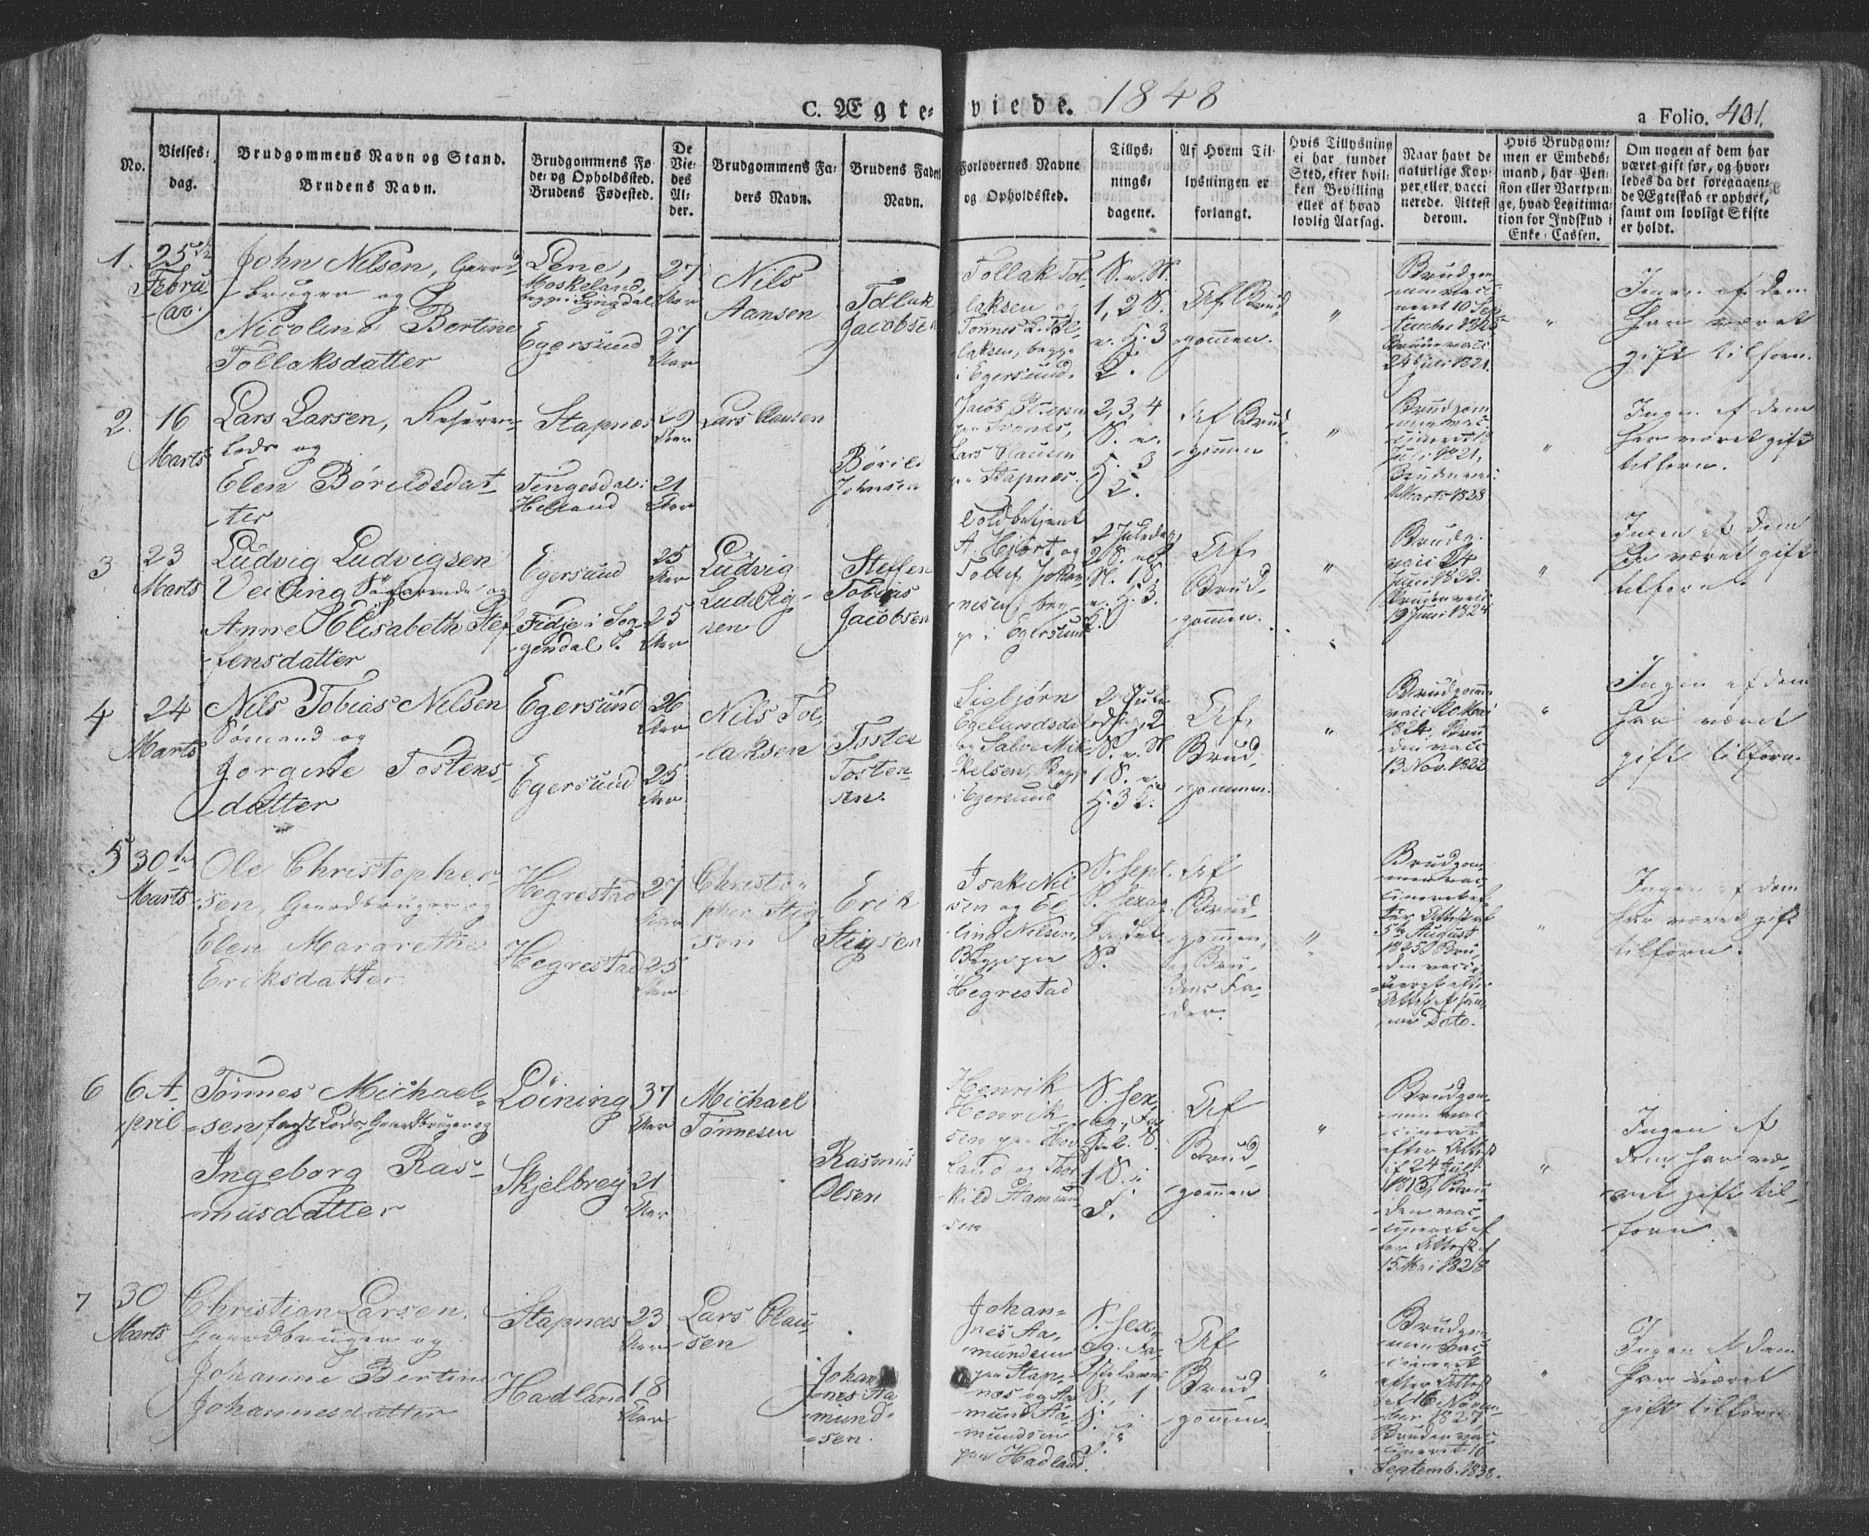 C. Ægte-viede. 1848
a Folio. 401.
No.
Vielses-
dag.
Brudgommens Navn og Stand.
Brudens Navn.
Brudgommens Fø-
de- og Opholdssted.
Brudens Fødested.
De
Vie-
des
Al-
der.
Brudgommens Fa-
ders Navn.
Brudens Faders
Navn.
Forlovernes Navne
og Opholdssted.
Tillys-
nings-
dagene.
Af Hvem Til-
lysningen er
forlangt.
Hvis Tillysning
ei har fundet
Sted, efter hvil-
ken Bevilling
eller af hvad
lovlig Aarsag.
Naar havt de
naturlige Kop-
per eller vacci-
nerede. Attest
derom.
Hvis Brudgom-
men er Embeds-
mand, har Pen-
sion eller Vartpen-
ge, hvad Legitima-
tion for Indskud i
Enke-Cassen.
Om nogen af dem har
været gift før, og hvor-
ledes da det foregaaen-
de Ægteskab er ophørt,
samt om lovligt Skifte
er holdt.
1.
25de
Febru-
ar.
John Nilsen, Gaard-
bruger og
Nicoline Bertine
Tollaksdatter
Lene,
Moskeland,
Egersund
27
Aar
27
Aar
Nils
Aansen
Tollak
Jacobsen
Tollak Tol-
laksen og
Tønnes L. Tol-
laksen, begge
i Egersund.
S. e. N.
1, 2 S.
e. H. 3
K.
Af Brud-
gommen.
"
Brudgom-
men vacci-
neret 10 Sep-
tember 1825
Bruden vacc.
24 Juli 1821.
"
Ingen af dem
har været
gift tilforn.
2.
16
Marts
Lars Larsen,
og
Elen Børildsdat-
ter
Stapnæs
Tengesdal i
Helland
29
Aar
21
Aar
Lars Clausen
Børild
Johnsen
Jacob
paa Svanes,
Lars Clausen
paa Stapnæs.
2, 3, 4
S. e.
H. 3
K.
Af Brud-
gommen
"
Juli 1821,
Bruden vacc.
Marts 1828
"
Ingen af dem
har været gift
tilforn.
3
23
Marts
Ludvig Ludvigsen
Veiling Søfarende og
Anne Elisabeth Stef-
fensdatter
Egersund
Fidje i Sog-
gendal P.
25
Aar
25
Aar
Ludvig
Ludvig-
sen
Steffen
Tobias
Jacobsen
Toldbetjent
A. Hjort og
Tollef Johan-
nesen, beg-
ge i Egersund
2 Juledag,
N. 1 S.
e. H. 3.
Af
Brud-
gommen.
"
Brudg.
vacc. 24
Juni 1823.
Bruden vacc.
19 Juni 1824
"
Ingen af dem
har været gift
tilforn.
4
24
Marts
Nils Tobias Nilsen
Sømand og
Jorgine Tostens-
datter
Egersund
Egersund
26
Aar
25
Aar
Nils Tol-
laksen
Tosten
Tosten-
sen.
Sigbjørn
Egelandsdal
og Salve Mik-
kelsen, Begge
i Egersund
2 Jule
dag, 2
S. e. N.
1 S. e.
H. 3 K.
Af
Brud-
gommen.
"
1824. Bru-
den vacc.
13 Nov. 1822
"
Ingen af dem
har været
gift tilforn.
5
30te
Marts
Ole Christopher-
sen, Gaardbruger og
Elen Margrethe
Eriksdatter
Hegrestad
Hegrestad
27
Aar
25
Aar
Christo-
pher Stig-
sen
Erik
Stigsen
Isak Nil-
sen og El-
ling Nilsen,
Begge paa
Hegrestad
S. Sept.
S. Sexag.
Faste
S.
Af
Brud-
gommen,
og Bru-
dens Fa-
der.
"
Brudgom-
men vac-
cineret ef-
ter Attest af
5te August
1825. Bru-
den vacci-
neret efter
Attest af sam-
me Dato.
"
Ingen af dem
har været gift
tilforn.
6
6 A-
pril
Tønnes Michael-
sen Gaardbruger og
Ingeborg Ras-
musdatter
Löining
Skjelbrey
37
Aar
21
Aar
Michael
Tønnesen
Rasmus
Olsen
Henrik
Henrik-
sen paa Hov-
land og Thor-
kild Aamund-
sen
S. Sex-
ag., Fa-
1 S. i
F.
Af
Brud-
gommen
"
Brudgom-
men vac-
cineret
efter Attest
af 24 Juli
1813, Bru-
den vac-
cineret ef-
ter Attest af
15 Mai 1828
"
Ingen af
dem har væ-
ret gift til-
forn.
7
30
Marts
Christian Larsen,
Gaardbruger og
Johanne Bertine
Johannesdatter
Stapnæs
Hadland
23
Aar
18
Aar
Lars Clau-
sen
Johan-
nes Aa-
mund-
sen.
Johan-
nes Aa-
mundsen
paa Stap-
næs og Aa-
mund Aa-
mundsen
paa Hadland.
S. Sex-
ag. Fa-
stelavns
S., 1
S. i
F.
Af
Brud-
gommen.
"
Brudgom-
men vac-
cineret
efter Attest
af 16 Novem-
ber 1827
Bruden vac-
cineret 10
Septemb. 1838.
"
Ingen af dem
har været
gift tilforn.